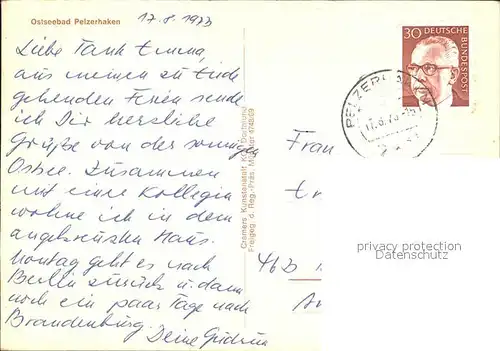 Ostseebad Pelzerhaken
17.8.1973
Liebe Tante Emma,
aus meinen zu Ende
gehenden Ferien sende
ich Dir herzliche
Grüße von der sonnigen
Ostsee. Zusammen
mit einer Kollegin
wohne ich in dem
angekreuzten Haus.
Montag geht es nach
Berlin zurück u. dann
noch ein paar Tage nach
Brandenburg.
Deine Gudrun
Cramers Kunstanstalt KG, Dortmund
Freigeg. d. Reg.-Präs.
30 DEUTSCHE
BUNDESPOST
17.8.73
Frau
463
privacy protection
Datenschutz